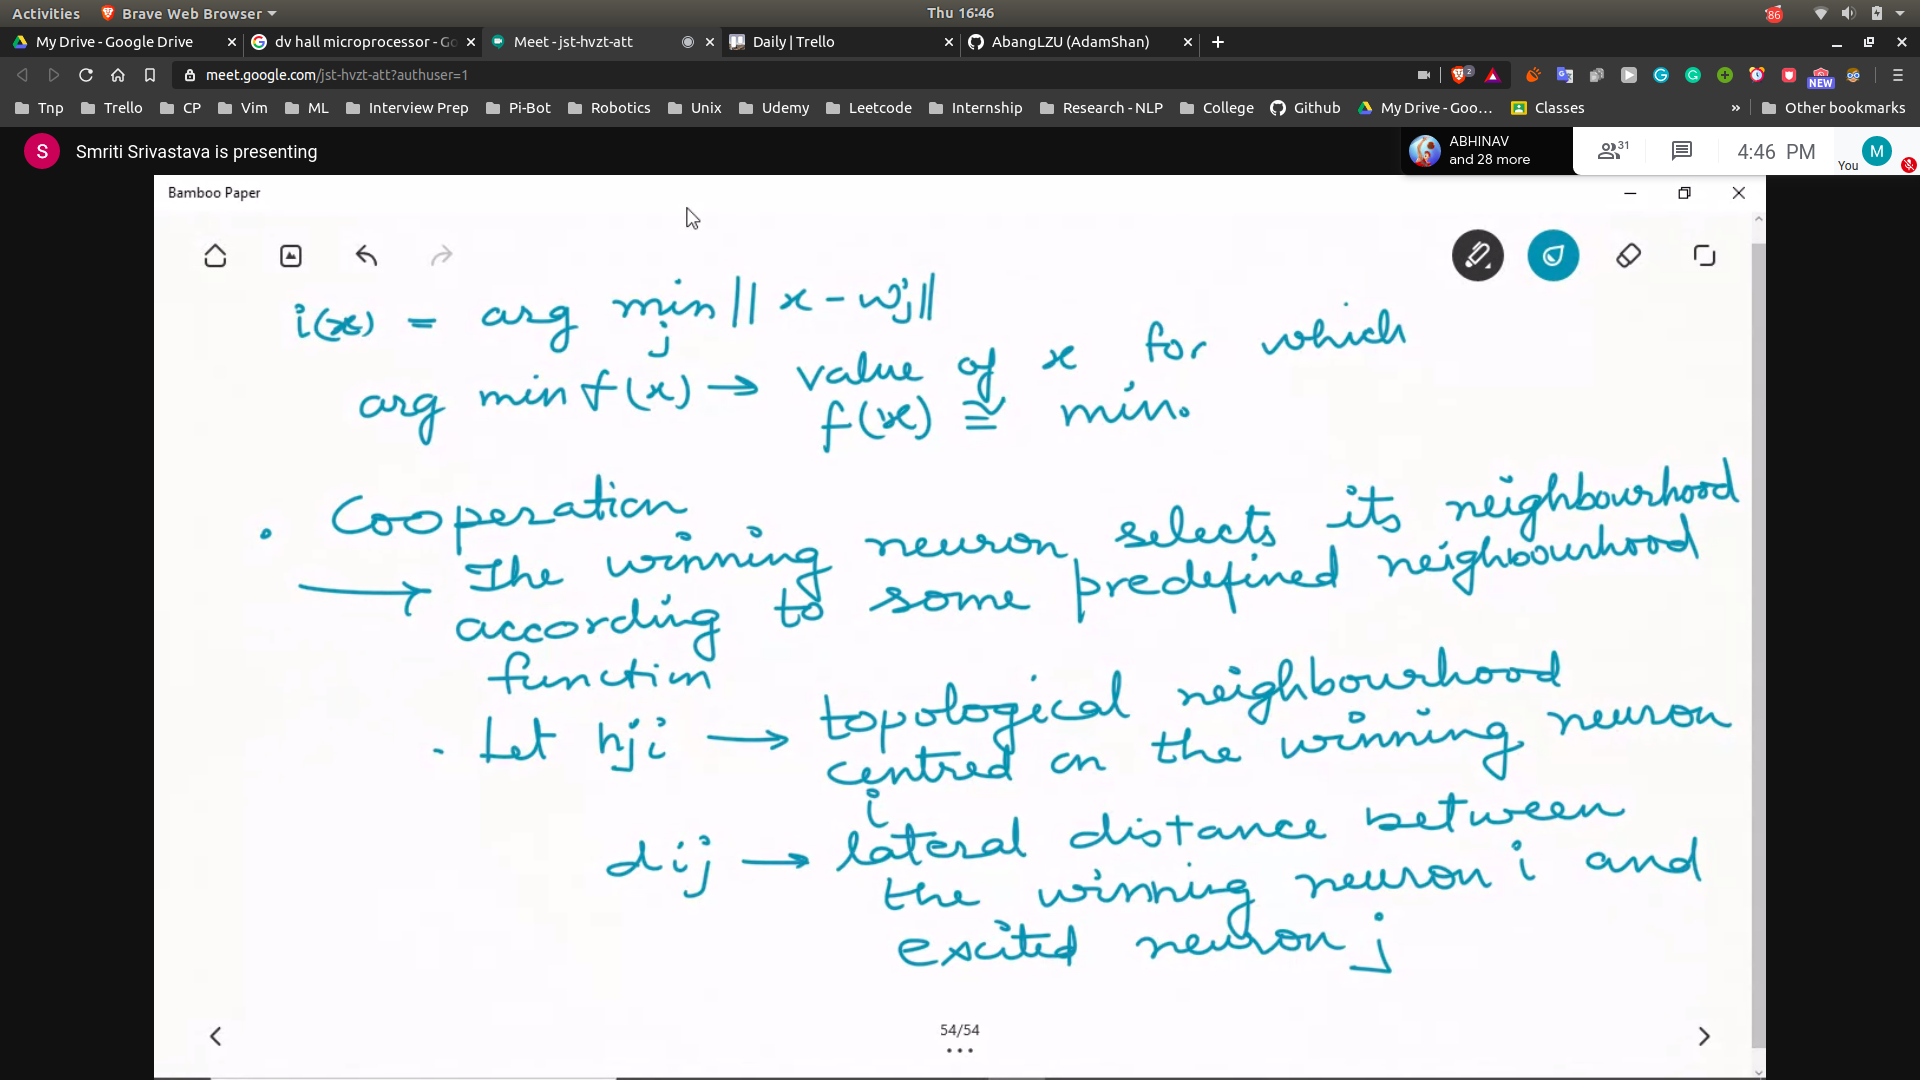 Activities Brave Web Browser Thu 16:46 86
My Drive - Google Drive dv hall microprocessor - Go Meet - jst-hvzt-att Daily | Trello AbangLZU (AdamShan)
meet.google.com/jst-hvzt-att?authuser=1 2 NEW
Tnp Trello CP Vim ML Interview Prep Pi-Bot Robotics Unix Udemy Leetcode Internship Research - NLP College Github My Drive - Goo... Classes » Other bookmarks
S Smriti Srivastava is presenting ABHINAV and 28 more 31 4:46 PM You M
Bamboo Paper
i(x) = arg min || x - wj ||
j
arg min f(x) → value of x for which
f(x) ≅ min.
• Cooperation
→ The winning neuron selects its neighbourhood
according to some predefined neighbourhood
function
. Let hji → topological neighbourhood
centred on the winning neuron
i
dij → lateral distance between
the winning neuron i and
excited neuron j
54/54